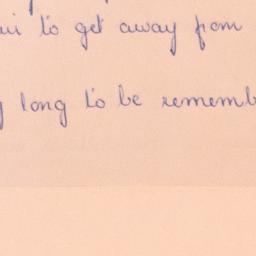 to get away from
long to be rememb